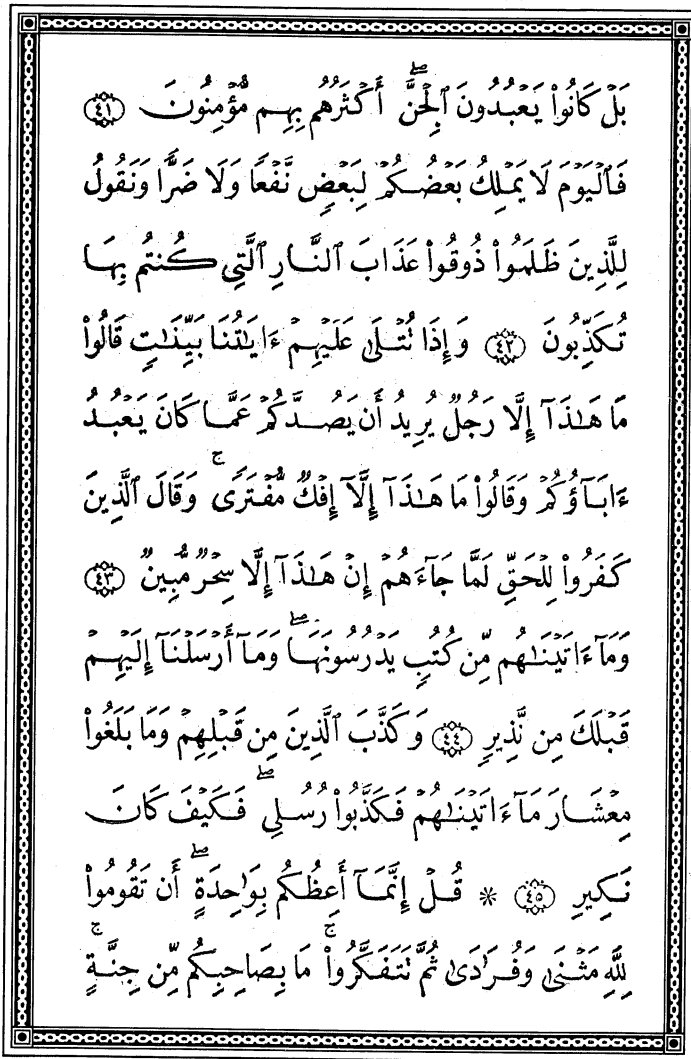 بَلْ كَانُوا۟ يَعْبُدُونَ ٱلْجِنَّ ۖ أَكْثَرُهُم بِهِم مُّؤْمِنُونَ ٤١
فَٱلْيَوْمَ لَا يَمْلِكُ بَعْضُكُمْ لِبَعْضٍ نَّفْعًا وَلَا ضَرًّا وَنَقُولُ
لِلَّذِينَ ظَلَمُوا۟ ذُوقُوا۟ عَذَابَ ٱلنَّارِ ٱلَّتِى كُنتُم بِهَا
تُكَذِّبُونَ ٤٢ وَإِذَا تُتْلَىٰ عَلَيْهِمْ ءَايَـٰتُنَا بَيِّنَـٰتٍ قَالُوا۟
مَا هَـٰذَآ إِلَّا رَجُلٌ يُرِيدُ أَن يَصُدَّكُمْ عَمَّا كَانَ يَعْبُدُ
ءَابَآؤُكُمْ وَقَالُوا۟ مَا هَـٰذَآ إِلَّآ إِفْكٌ مُّفْتَرًى ۚ وَقَالَ ٱلَّذِينَ
كَفَرُوا۟ لِلْحَقِّ لَمَّا جَآءَهُمْ إِنْ هَـٰذَآ إِلَّا سِحْرٌ مُّبِينٌ ٤٣
وَمَآ ءَاتَيْنَـٰهُم مِّن كُتُبٍ يَدْرُسُونَهَا ۖ وَمَآ أَرْسَلْنَآ إِلَيْهِمْ
قَبْلَكَ مِن نَّذِيرٍ ٤٤ وَكَذَّبَ ٱلَّذِينَ مِن قَبْلِهِمْ وَمَا بَلَغُوا۟
مِعْشَارَ مَآ ءَاتَيْنَـٰهُمْ فَكَذَّبُوا۟ رُسُلِى ۖ فَكَيْفَ كَانَ
نَكِيرِ ٤٥ * قُلْ إِنَّمَآ أَعِظُكُم بِوَٰحِدَةٍ ۖ أَن تَقُومُوا۟
لِلَّهِ مَثْنَىٰ وَفُرَٰدَىٰ ثُمَّ تَتَفَكَّرُوا۟ ۚ مَا بِصَاحِبِكُم مِّن جِنَّةٍ ۚ